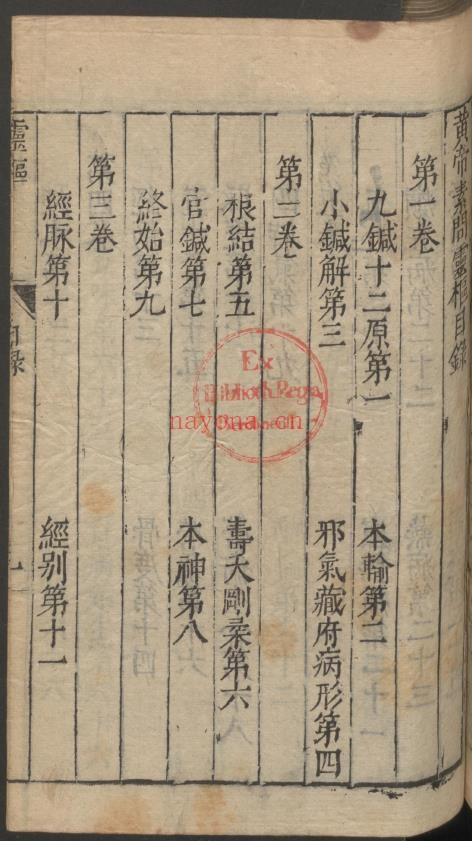 黄帝素問靈樞目錄
第一卷
九鍼十二原第一
本輸第二
小鍼解第三
邪氣藏府病形第四
第二卷
根結第五
壽夭剛柔第六
官鍼第七
本神第八
終始第九
第三卷
經脉第十
經别第十一
靈樞
目錄
一
Ex
Biblioth. Regia
Berolinensi
nayona.cn